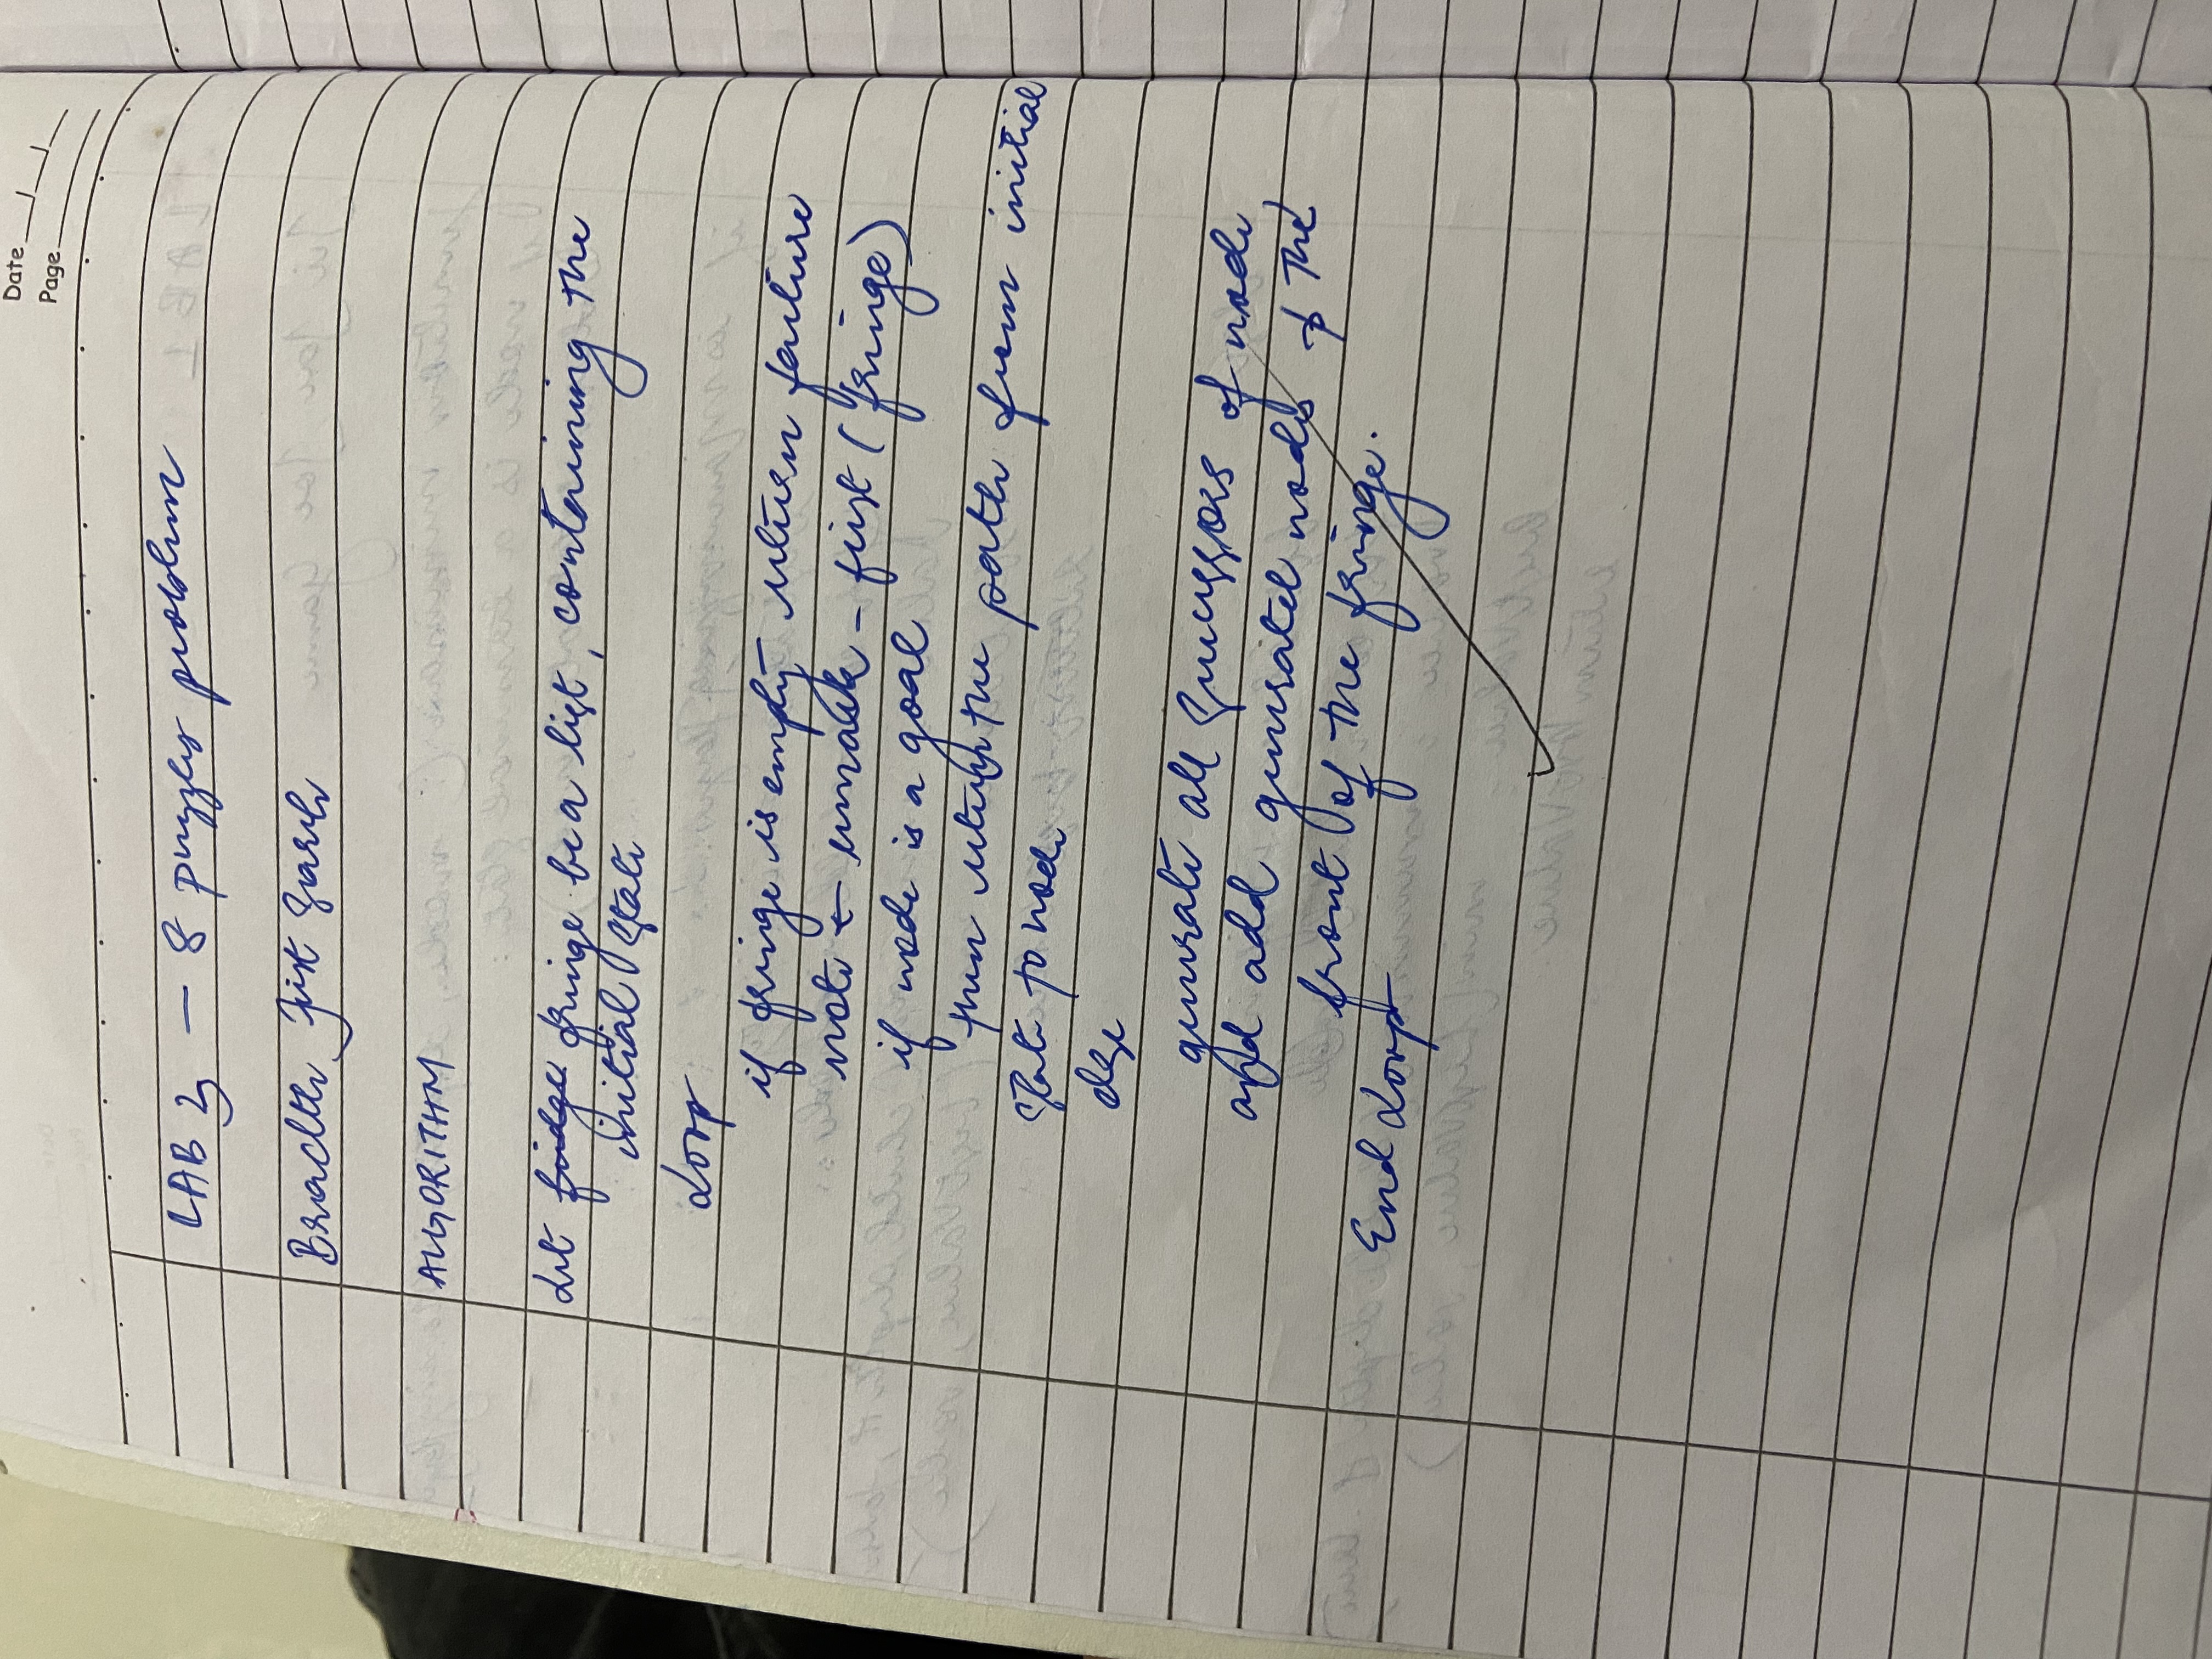 Date
Page
LAB 3 — 8 puzzles problem
Breadth First Search
ALGORITHM
Let fridge fringe be a list, containing the
initial state
Loop
if fringe is empty return failure
node ← remove - first (fringe)
if node is a goal
then return the path from initial
state to node
else
generate all successors of node,
and add generated nodes to the
front of the fringe.
End Loop